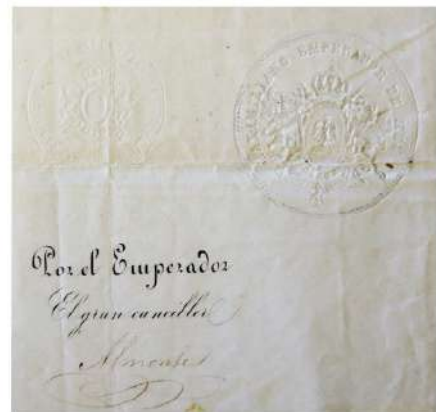 MAXIMILIANO EMPERADOR DE
Por el Emperador
El gran canciller
Almonte